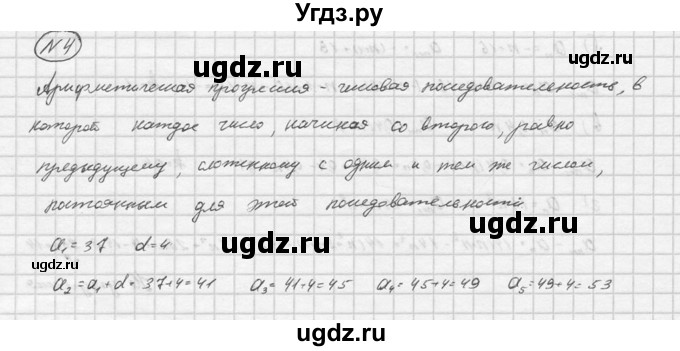 Угдз.ру
№4
ugdz.ru ugdz.ru
Арифметическая прогрессия - числовая последовательность, в
которой каждое число, начиная со второго, равно
ugdz.ru
предыдущему, сложенному с одним и тем же числом,
постоянным для этой последовательности
ugdz.ru
a₁ = 37 d = 4
ugdz.ru
a₂ = a₁ + d = 37+4 = 41 a₃ = 41+4 = 45 a₄ = 45+4 = 49 a₅ = 49+4 = 53
ugdz.ru ugdz.ru